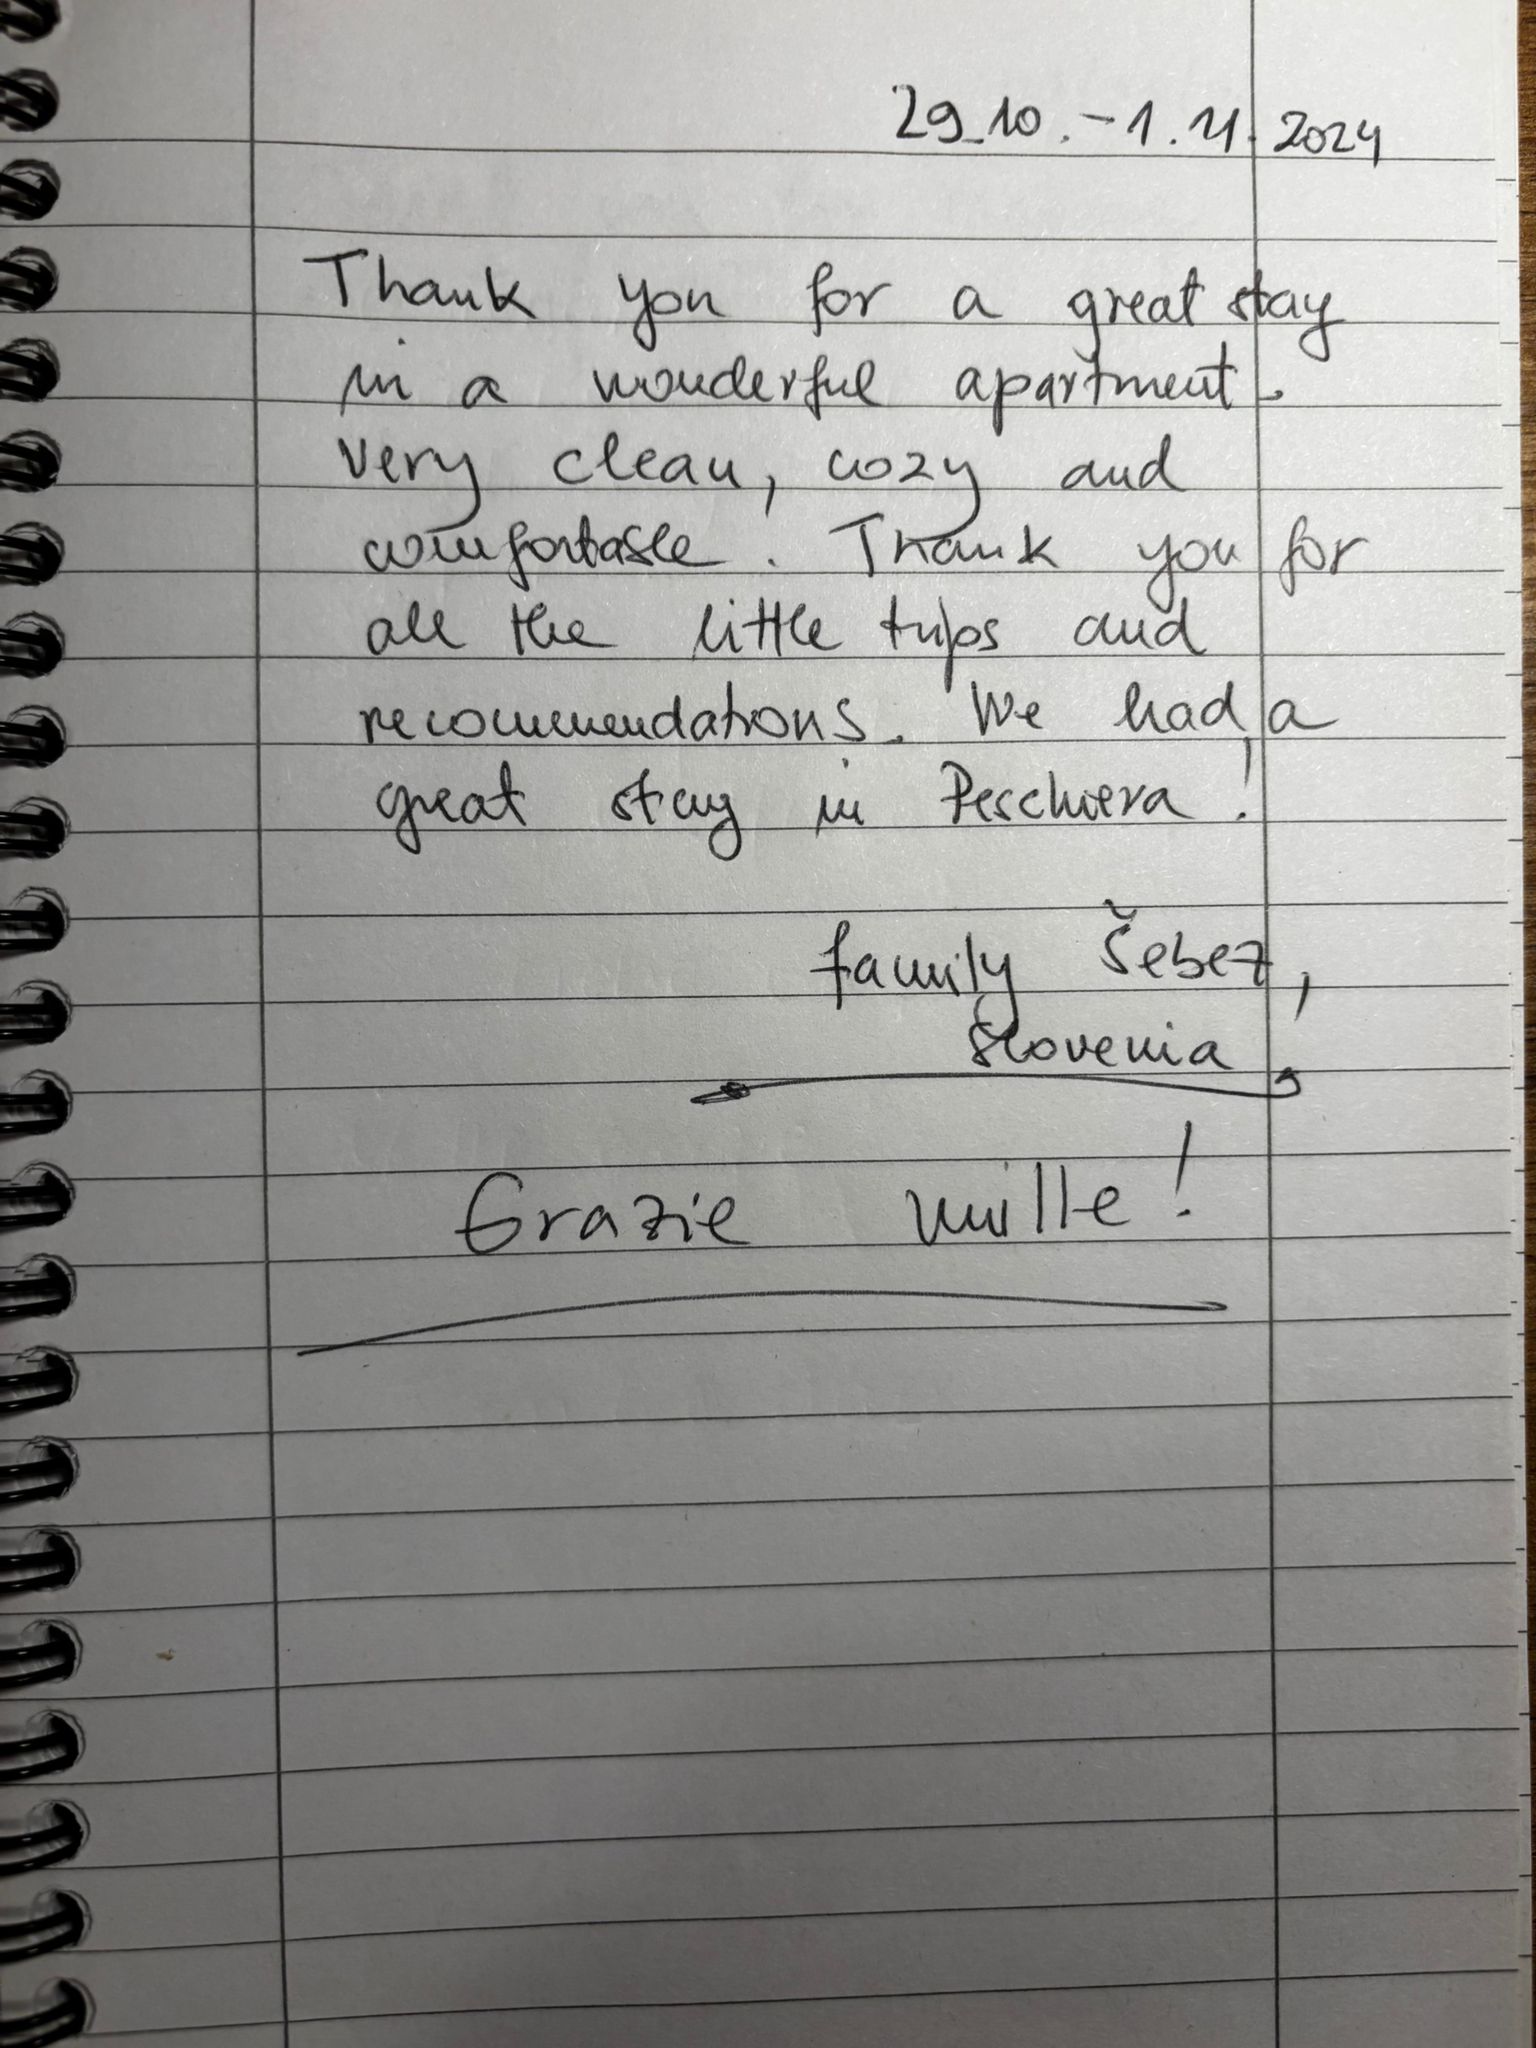 29.10. - 1.11.2024
Thank you for a great stay
in a wonderful apartment.
Very clean, cozy and
comfortable. Thank you for
all the little trips and
recommendations. We had a
great stay in Peschiera!
family Šebez,
Slovenia
Grazie mille!